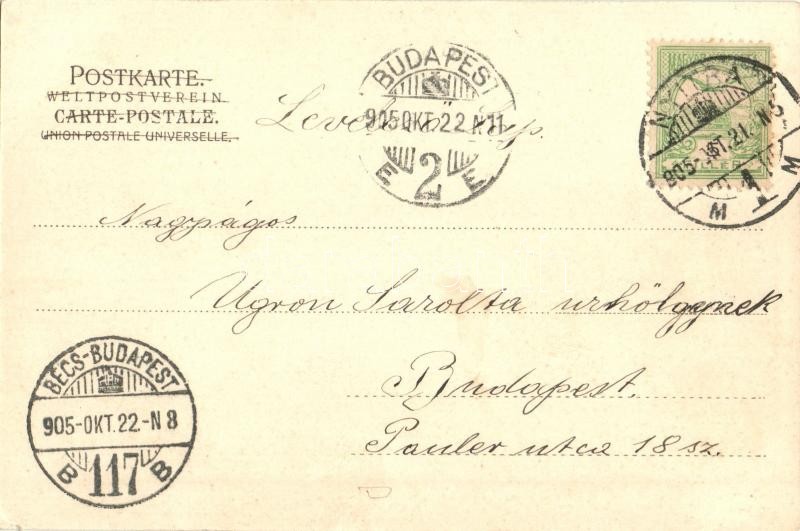 POSTKARTE.
WELTPOSTVEREIN.
CARTE-POSTALE.
UNION POSTALE UNIVERSELLE.
BUDAPEST
905 OKT. 22. N 11
E 2 E
NYITRA
905 OKT. 21. N 5
M 1 M
Nagyságos
Ugron Sarolta urhölgynek
Budapest.
Pauler utca 18 sz.
BÉCS-BUDAPEST
905-OKT. 22.-N 8
B 117 B